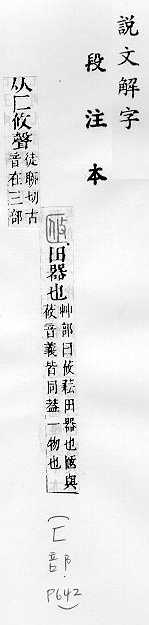 說文解字
段注本
田器也
艸部曰莜芸田器也與
莜音義皆同葢一物也
从匚攸聲
徒聊切古
音在三部
(匚部.P642)